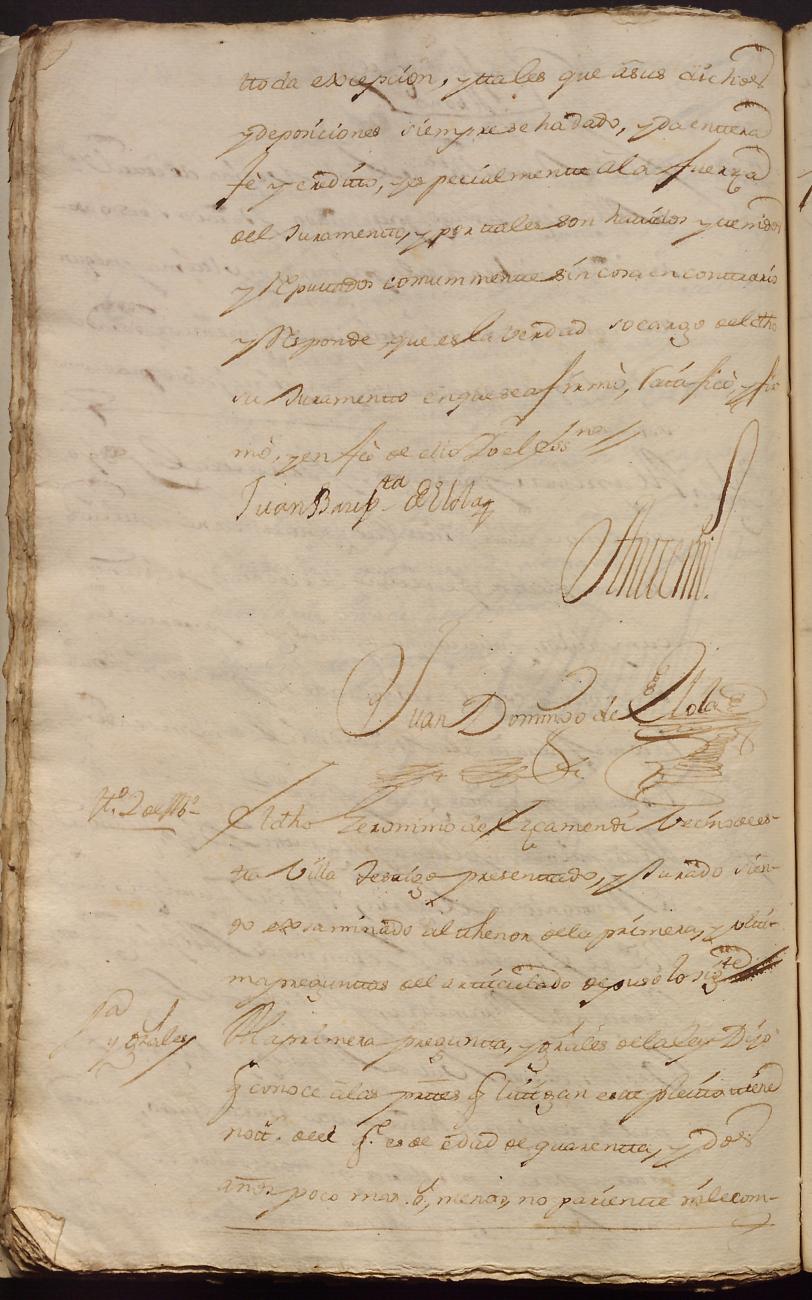 ttoda excepcion, y ttales que a sus dichos
y deposiciones siempre se ha dado, y da enttera
fè y creditto, y especialmentte a la fuerza
del Juramentto, y por ttales son havidos y ttenidos
y Reputtados comunmentte sin cosa en conttrario
y Responde que es la verdad so cargo de el dho
su Juramentto en que se afirmò, Rattificò, y fir
mò, y en feè de ello Yo el Ess.no
Juan Baup.ta de Elola
Antemi.
Juan Domingo de Elola
tt.o 2 de Ab.o
El dho Geronimo de Ezcamendi Vecino de es-
tta Villa Testigo presenttado, y Jurado sien-
do exsaminado al thenor de la primera, y ulti-
ma pregunttas del articulado depuso lo sig.te
1.a
y gräles
A la primera pregunta, y gräles de la ley Dijo
q conoce a las parttes q littigan estte pleitto ttiene
nott.a de el q.e es de edad de quarentta, y dos
años poco mas. ô, menos, no parientte ni le com-